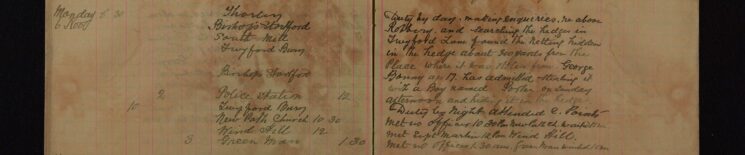 Monday 5.30
Thorley
Bishops Stortford
South Mill
Twyford Bury
Bishops Stortford
2 Police Station 12
10 Twyford Bury
New Path Church 10 30
Wind Hill 12
3 Green Man 1.30
Duty by day, making enquiries re above
Robbery, and searching the hedges in
Twyford Lane found the Netting hidden
in the hedge about yards from the
Place where it was stolen from George
Bonny age 17. has admitted stealing it
with a Boy named Porter on Sunday
afternoon and hiding it in the hedge
Duty by Night attended C. Points
met no officer 10.30 Pm New Path Ch
met Supt Martin 12 Pm Wind Hill,
met no officer 1.30 am, Green Man